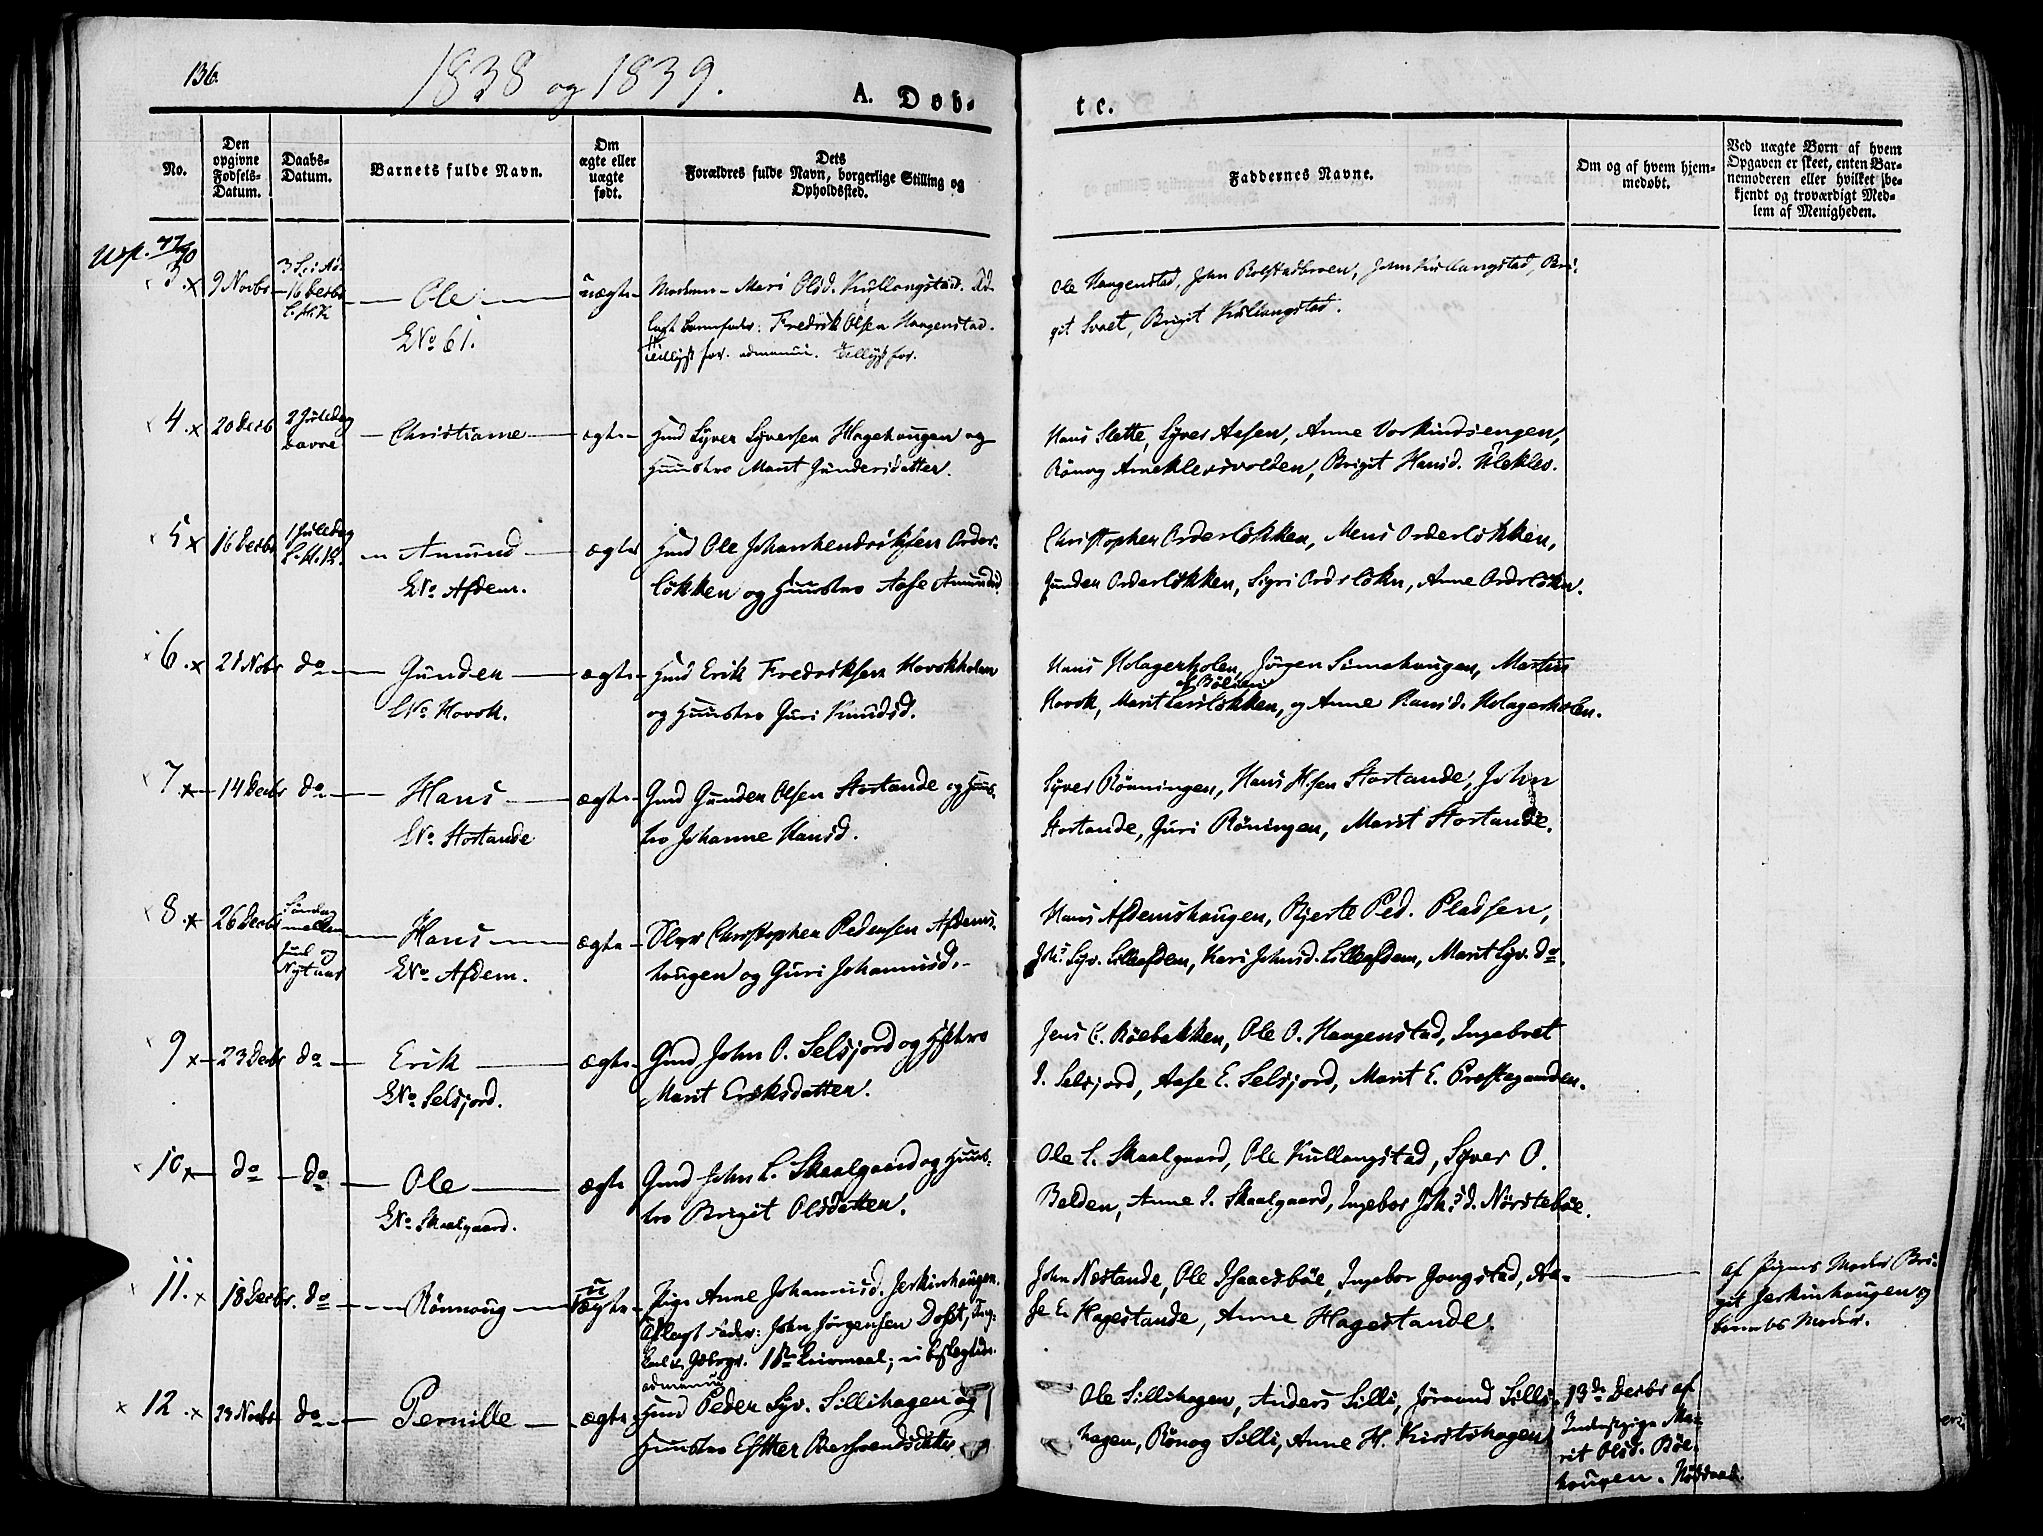 136.
1838 og 1839.
A. Døb-
te.
No.
Den opgivne Fødsels-Datum.
Daabs-Datum.
Barnets fulde Navn.
Om ægte eller uægte født.
Dets Forældres fulde Navn, borgerlige Stilling og Opholdssted.
Faddernes Navne.
Om og af hvem hjem-
medøbt.
Ved uægte Børn af hvem
Opgaven er skeet, enten Bar-
nemoderen eller hvilket be-
kjendt og troværdigt Med-
lem af Menigheden.
3 × 9 Novbr 16 Decbr Ole uægte Moderen Mari Olsd. Kullangstad. Ud-
E No 61. lagt Barnefader: Fredrik Olsen Haagenstad.
Ole Haagenstad, John Kullangstad, Bri-
git Svaet, Brigit Kullangstad.
4. × 20 Decb 2 Juledag Dovre Christiane ægte Gmd Syver Syversen Hagehaugen og
Huustro Marit Gundersdatter.
Hans Slette, Syver Aasen, Anne Vorkindsengen,
Rønog Arneklevsvolden, Brigit Hansd. Ulekles.
5 × 16 Decbr 1 Juledag L.H.K. Amund ægte Hmd Ole Johanhendriksen Order-
E No Afdem. løkken og Huustro Aase Amundsd.
Christopher Orderløkken, Mens Orderløkken,
Gunder Orderløkken, Sigri Ordrløkn, Anne Ordrløkn.
6 × 21 Nobr do Gunder ægte Hmd Erik Fredriksen Hovokholen
E No Hovok. og Huustro Guri Knudsd.
Hans Holagerholen, Jørgen Simehaugen, Mathis
Hovok, Marit Larsløkken, og Anne Hansd. Holagerholen.
7. × 14 Decbr do Hans ægte Gmd Gunder Olsen Stostande og Huus-
E No Stostande tro Johanne Hansd.
Syver Rønningen, Hans H.sen Stostande, John
Stostande, Guri Røningen, Marit Stostande.
8. × 26 Decbr Søndag mellem Juul og Nytaar Hans ægte Christopher Pedersen Afdems-
E No Afdem. hougen og Guri Johannisd.
Hans Afdemshougen, Bjerte Ped. Pladsen,
Johs Syv. Lilleafdem, Kari Johnsd. Lilleafdem, Marit Syv. do.
9 × 23 Decbr do Erik ægte Gmd John O. Selsjord og Hstro
E No Selsjord. Marit Eriksdatter.
Jens C. Bøebakken, Ole O. Haagenstad, Ingebret
I. Selsjord, Aase E. Selsjord, Marit E. Prestegaarden.
10 × do do Ole ægte Gmd John L. Skaalgaard og Huus-
E No Skaalgaard. tro Brigit Olsdatter.
Ole L. Skaalgaard, Ole Kullangstad, Syver O.
Belden, Anne I. Skaalgaard, Ingebor Joh.sd. Nørstebøe.
11. × 18 Decbr. do Rønnoug uægte Pige Anne Johannisd. Jerkinhaugen.
Udlagt Fader: John Jørgensen Dofst, Ung-
karl 18te Leiermaal; ei beslegtede.
John Næstande, Ole Isaacsbøe, Ingebor Jongstad, Aa-
se E. Hagestande, Anne Hagestande.
af Pigens Moder Bri-
git Jerkinhougen og
Barnets Moder.
12 × 23 Novbr do Pernille ægte Hmd Peder Syv. Sillihagen og
Huustro Esther Bersvendsdatter
Ole Sillihagen, Anders Silli, Jørand Silli-
hagen, Rønog Silli, Anne H. Kirstihagen
13de Decbr af
Indst.pige Ma-
rit Olsd. Bøe-
hougen.